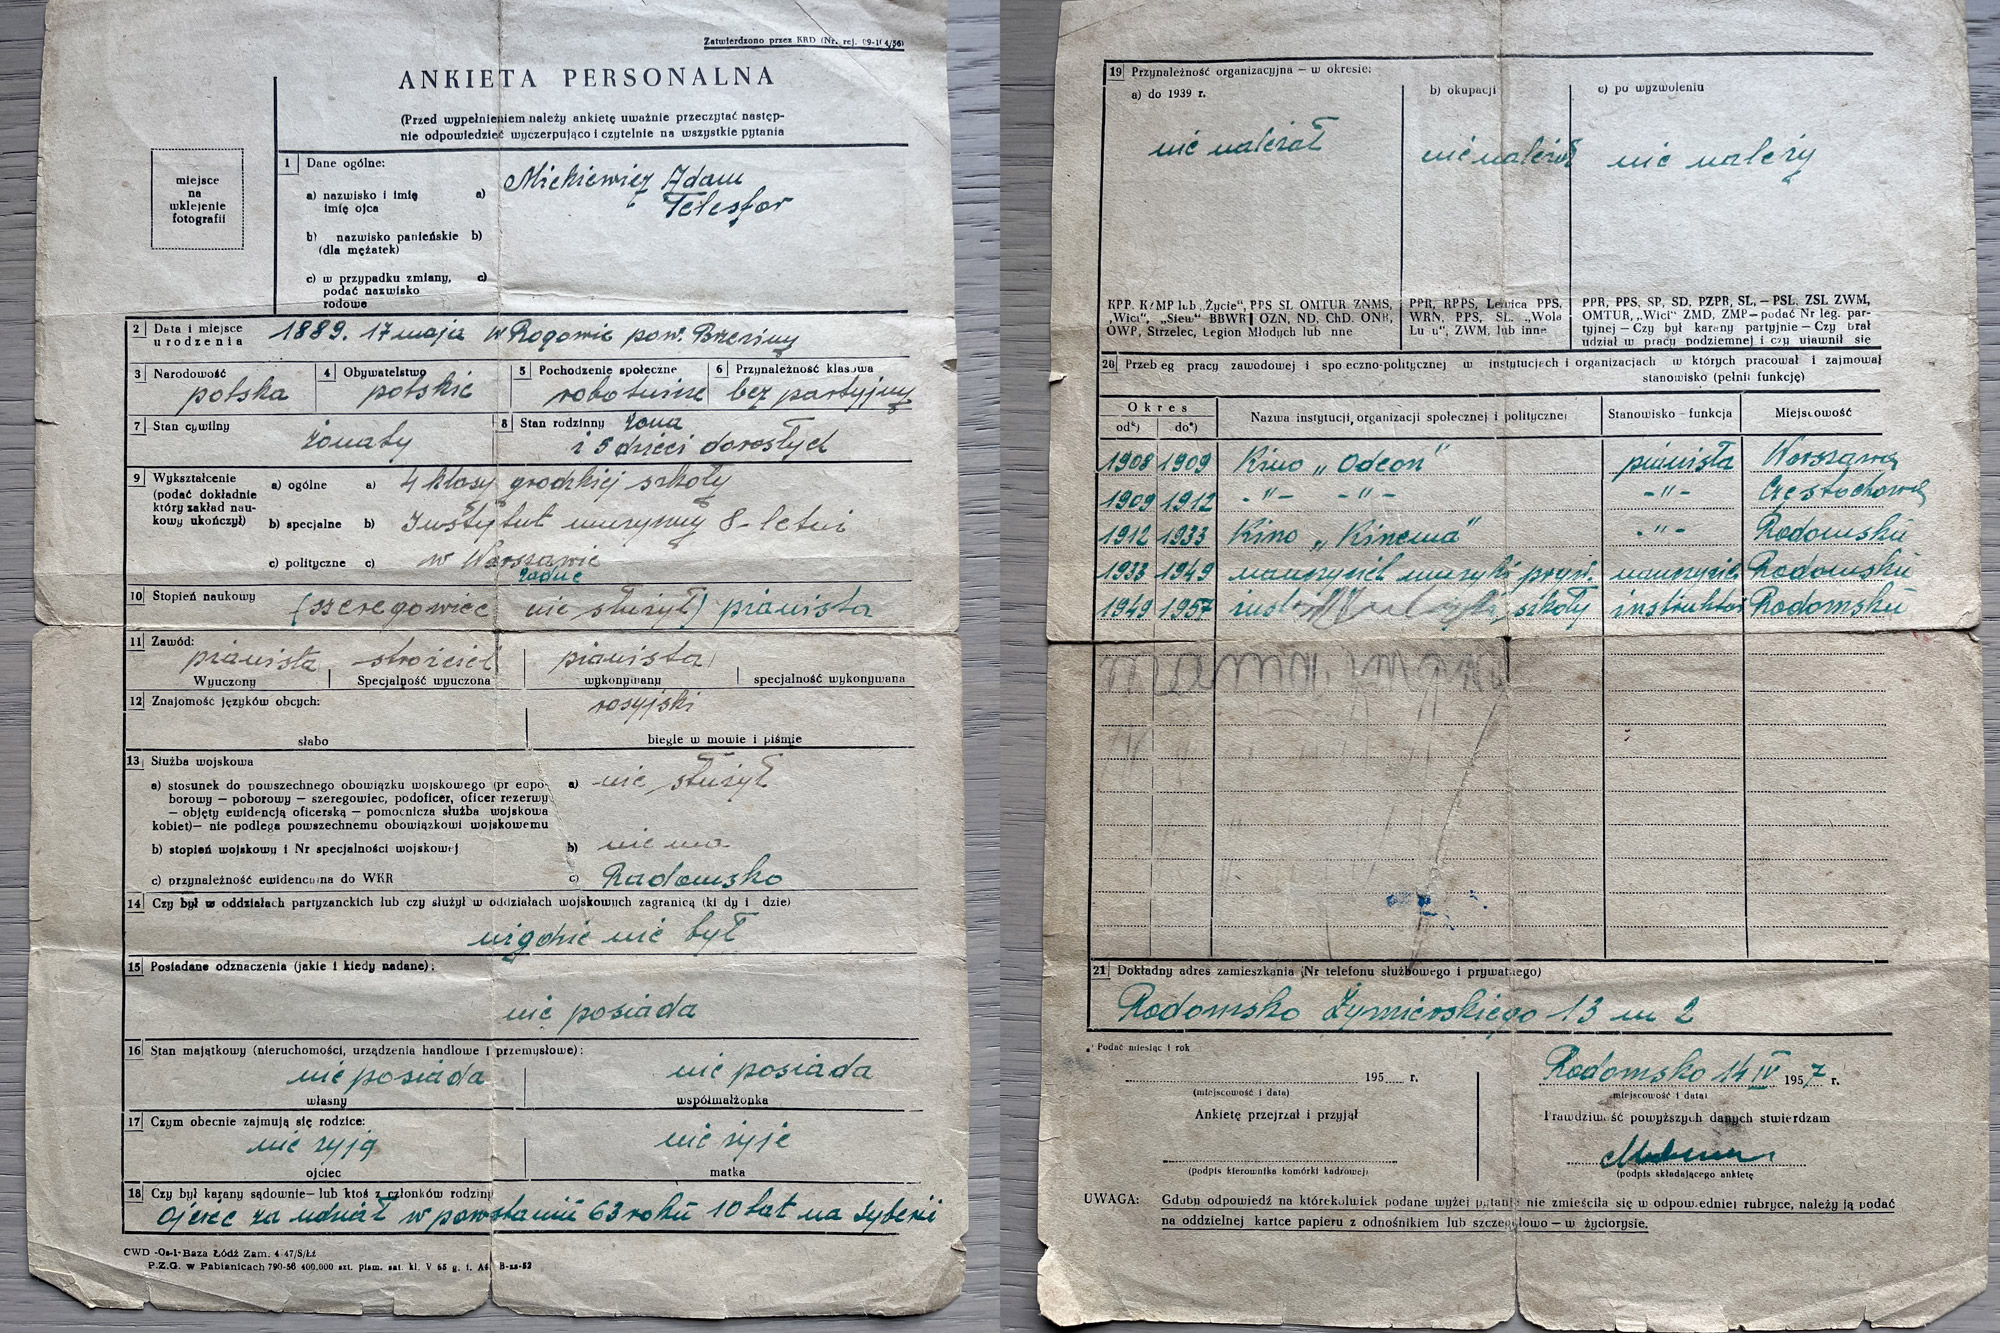 Zatwierdzono przez KRD (Nr. rej. 09-104/56)
ANKIETA PERSONALNA
(Przed wypełnieniem należy ankietę uważnie przeczytać następ-
nie odpowiedzieć wyczerpująco i czytelnie na wszystkie pytania
miejsce
na
wklejenie
fotografii
1 Dane ogólne:
a) nazwisko i imię a) Mickiewicz Adam
imię ojca Telesfor
b) nazwisko panieńskie b)
(dla mężatek)
c) w przypadku zmiany, c)
podać nazwisko
rodowe
2 Data i miejsce urodzenia 1889. 17 maja w Rogowie pow. Brzeziny
3 Narodowość 4 Obywatelstwo 5 Pochodzenie społeczne 6 Przynależność klasowa
polska polskie robotnicze bez partyjny
7 Stan cywilny 8 Stan rodzinny żona
żonaty i 5 dzieci dorosłych
9 Wykształcenie
(podać dokładnie
który zakład nau-
kowy ukończył)
a) ogólne a) 4 klasy grodzkiej szkoły
b) specjalne b) Instytut muzyczny 8-letni
c) polityczne c) w Warszawie
żadne
10 Stopień naukowy (szeregowiec nie służył) pianista
11 Zawód:
pianista stroiciel pianista
Wyuczony Specjalność wyuczona wykonywany specjalność wykonywana
12 Znajomość języków obcych: rosyjski
słabo biegle w mowie i piśmie
13 Służba wojskowa
a) stosunek do powszechnego obowiązku wojskowego (przedpo- a) nie służył
borowy — poborowy — szeregowiec, podoficer, oficer rezerwy
— objęty ewidencją oficerską — pomocnicza służba wojskowa
kobiet)— nie podlega powszechnemu obowiązkowi wojskowemu
b) stopień wojskowy i Nr specjalności wojskowej b) nie ma
c) przynależność ewidencyjna do WKR c) Radomsko
14 Czy był w oddziałach partyzanckich lub czy służył w oddziałach wojskowych zagranicą (kiedy i gdzie)
nigdzie nie był
15 Posiadane odznaczenia (jakie i kiedy nadane):
nie posiada
16 Stan majątkowy (nieruchomości, urządzenia handlowe i przemysłowe):
nie posiada nie posiada
własny współmałżonka
17 Czym obecnie zajmują się rodzice:
nie żyją nie żyje
ojciec matka
18 Czy był karany sądownie— lub ktoś z członków rodziny
Ojciec za udział w powstaniu 63 roku 10 lat na Syberii
CWD -Os-1-Baza Łódź Zam. 4 47/S/Łż
P.Z.G. w Pabianicach 790-56 400.000 szt. pism. sat. kl. V 65 g. f. B-xs-52
19 Przynależność organizacyjna — w okresie:
a) do 1939 r. b) okupacji c) po wyzwoleniu
nie należał nie należał nie należy
KPP, KZMP lub „Życie", PPS SL OMTUR ZNMS,
„Wici", „Siew" BBWR OZN, ND, ChD. ONR,
OWP, Strzelec, Legion Młodych lub inne
PPR, RPPS, Lewica PPS,
WRN, PPS, SL. „Wola
Ludu", ZWM, lub inne
PPR, PPS, SP, SD, PZPR, SL, — PSL. ZSL ZWM,
OMTUR, „Wici" ZMD, ZMP — podać Nr leg. par-
tyjnej — Czy był karany partyjnie — Czy brał
udział w pracy podziemnej i czy ujawnił się
20 Przebieg pracy zawodowej i społeczno-politycznej w instytucjach i organizacjach w których pracował i zajmował
stanowisko (pełnił funkcję)
Okres Nazwa instytucji, organizacji społecznej i politycznej Stanowisko - funkcja Miejscowość
od*) do*)
1908 1909 Kino „Odeon" pianista Warszawa
1909 1912 -"- -"- -"- Częstochowa
1912 1933 Kino „Kinema" -"- Radomsku
1933 1949 nauczyciel muzyki pryw. nauczyciel Radomsku
1949 1957 szkoły instruktor Radomsku
21 Dokładny adres zamieszkania (Nr telefonu służbowego i prywatnego)
Radomsko Żymierskiego 13 m 2
* Podać miesiąc i rok
195 r. Radomsko 14 IV 1957 r.
(miejscowość i data) miejscowość i data)
Ankietę przejrzał i przyjął Prawdziwość powyższych danych stwierdzam
(podpis kierownika komórki kadrowej) (podpis składającego ankietę
UWAGA: Gdyby odpowiedź na którekolwiek podane wyżej pytanie nie zmieściła się w odpowiedniej rubryce, należy ją podać
na oddzielnej kartce papieru z odnośnikiem lub szczegółowo — w życiorysie.